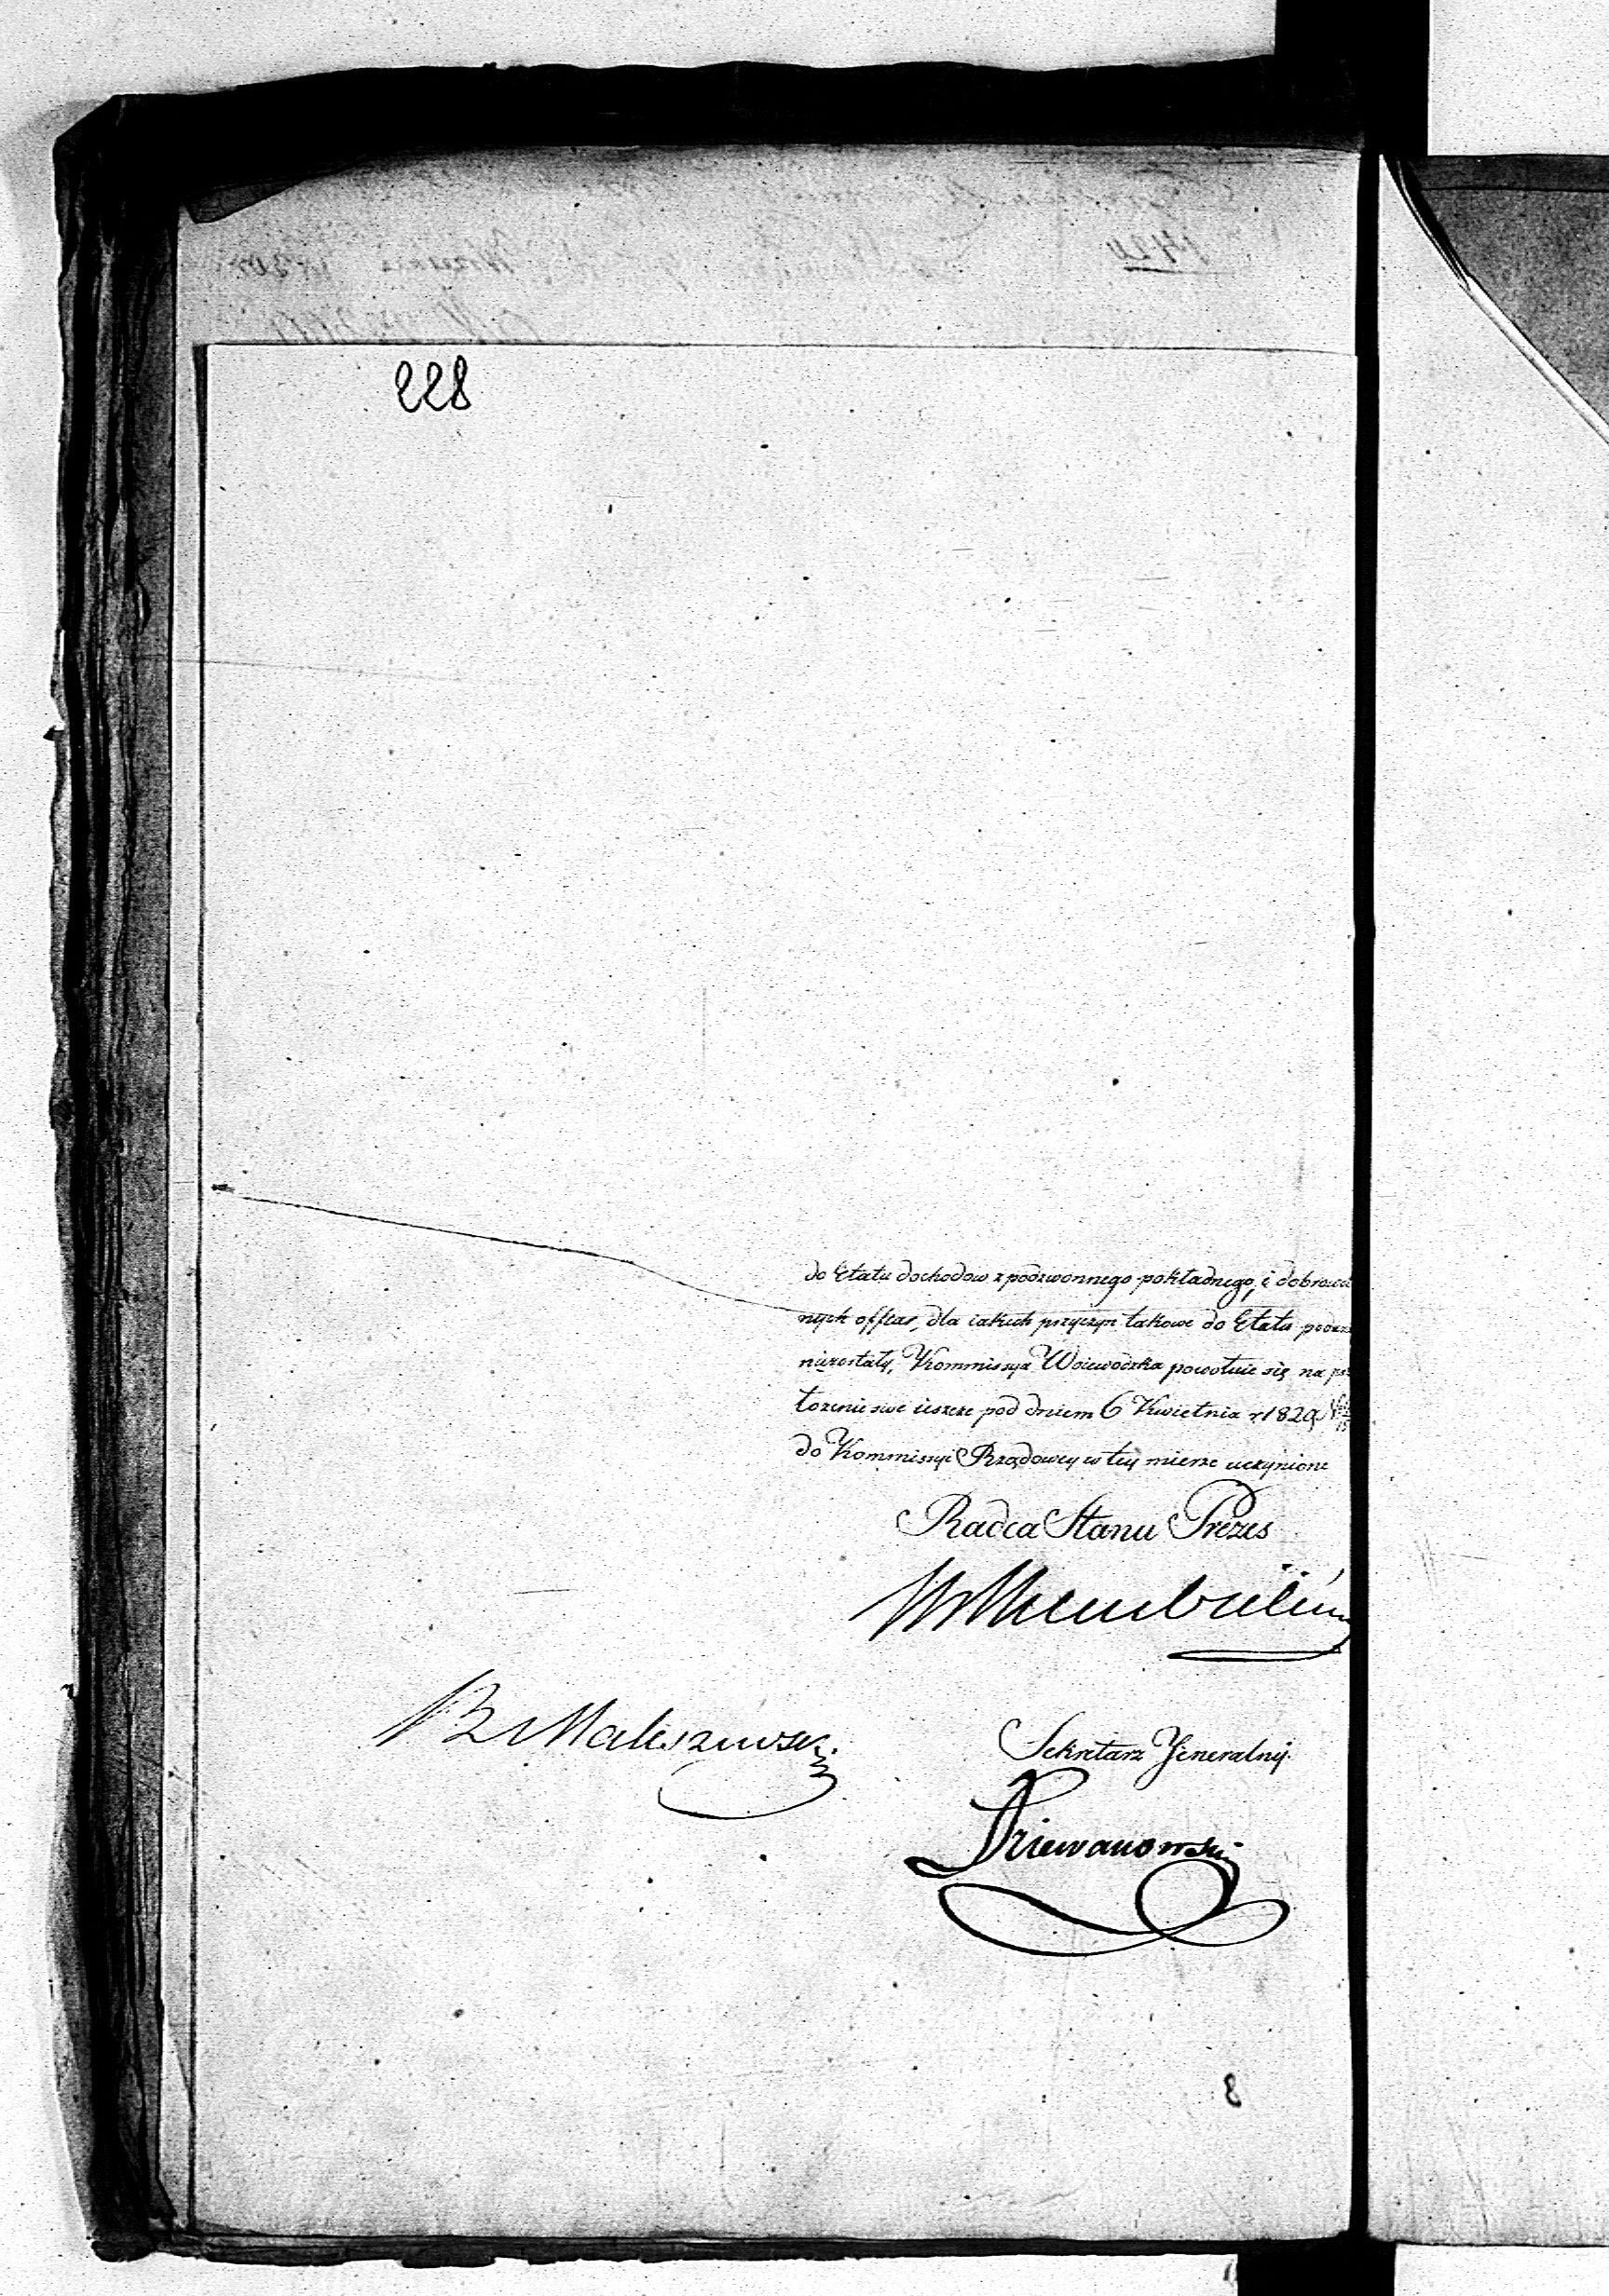 228
do Etatu dochodow z podzwonnego pokładnego, i dobrowol
nych offiar, dla iakich przyczyn takowe do Etatu
niezostały, Kommissya Woiewodzka powołuie się na
łozenie swe ieszcze pod dniem 6 Kwietnia r 1829
do Kommissyi Rządowey w tey mierze uczynione
Radca Stanu Prezes
Sekretarz Jeneralny.
Maleszewski
Dziewanowski
8